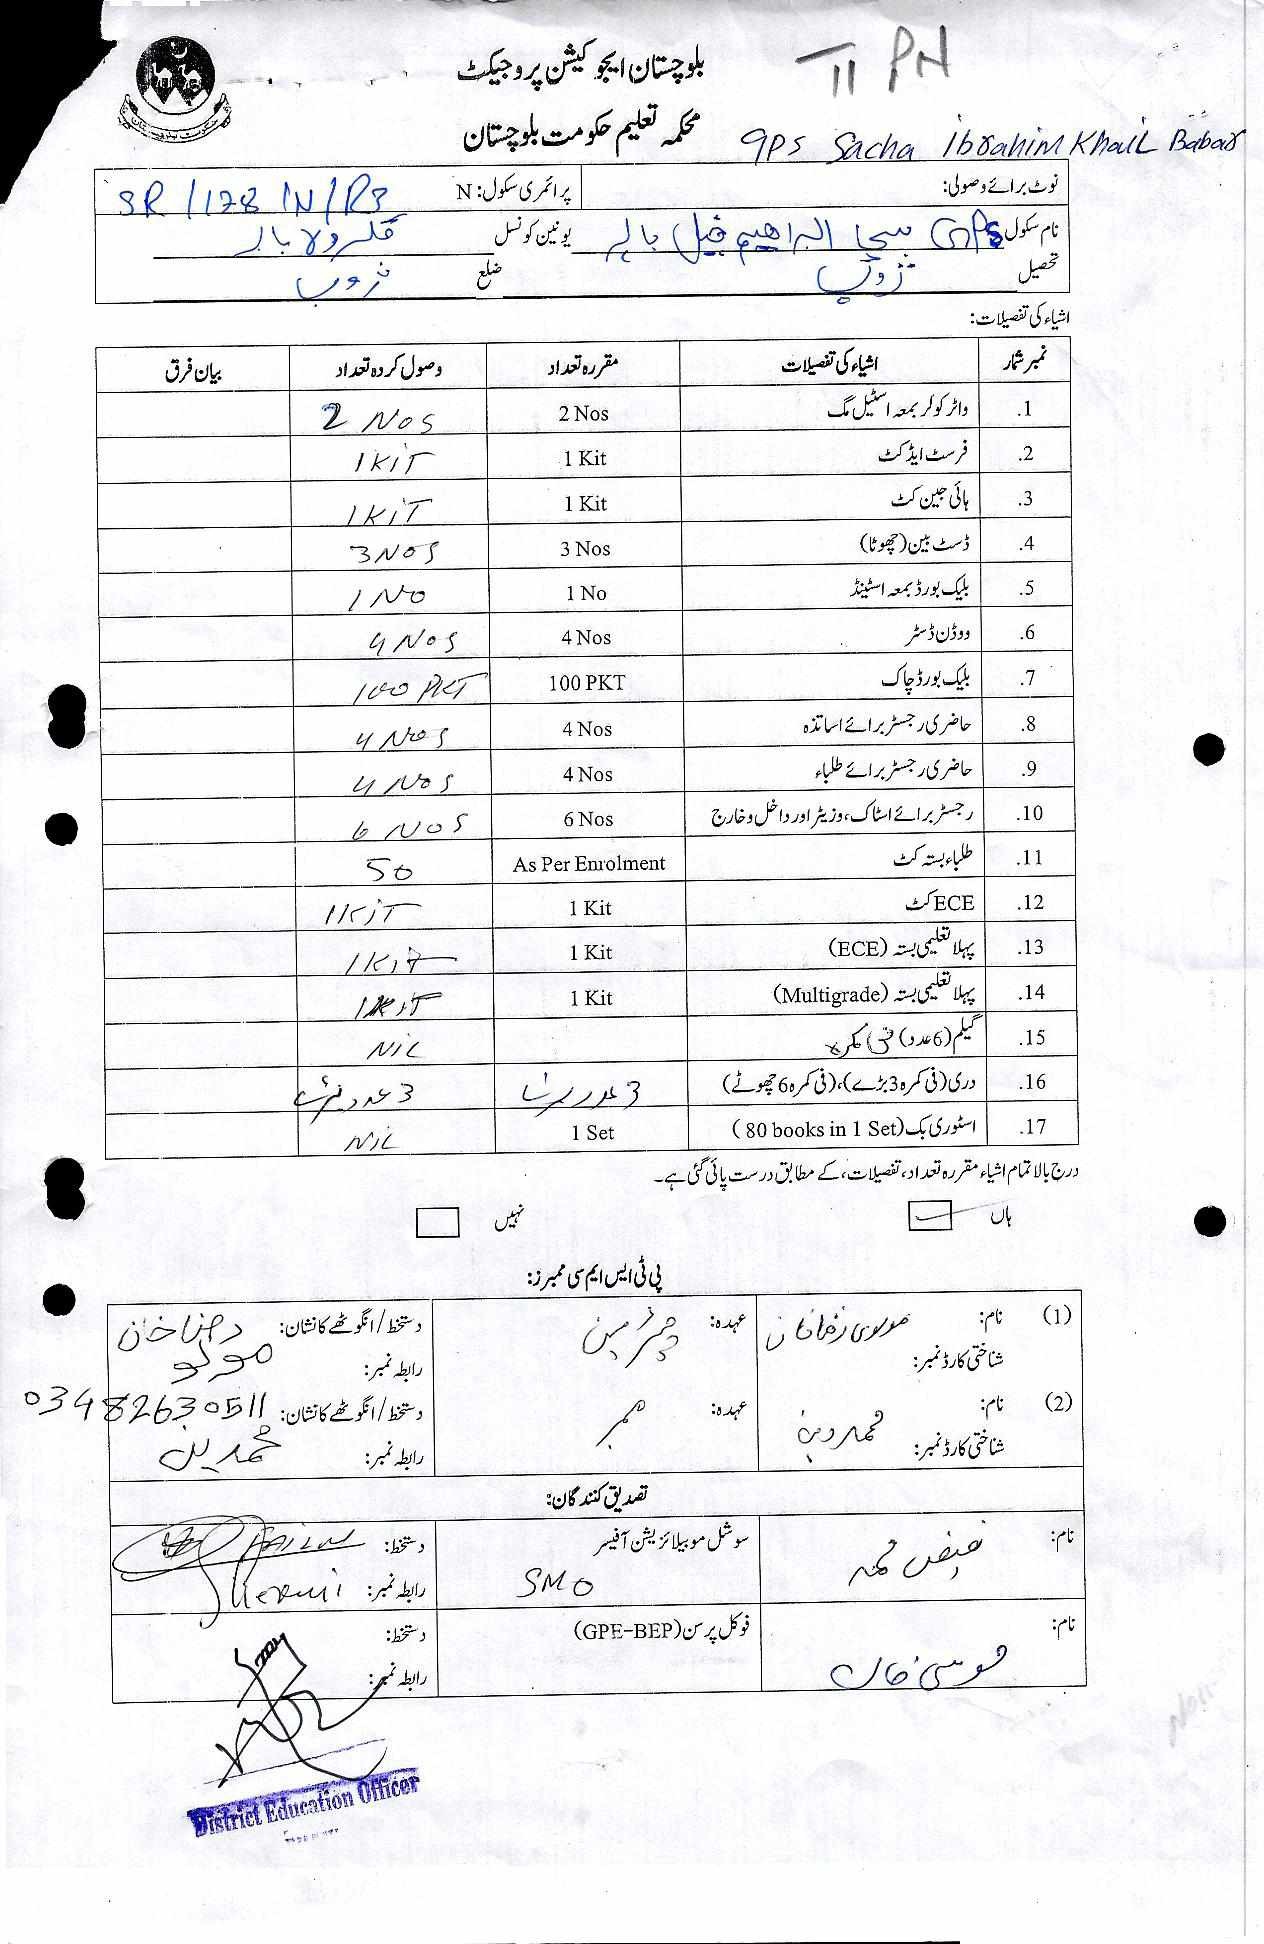 بلوچستان ایجوکیشن پروجیکٹ
محکمہ تعلیم حکومت بلوچستان
II PN
GPS Sacha Ibrahim Khail Babar
نوٹ برائے وصولی:
پرائمری سکول: N SR/178 IN/R3
نام سکول GPS سچا ابراھیم خیل بابر یونین کونسل
تحصیل ژوب ضلع ژوب
اشیاء کی تفصیلات:
نمبر شمار اشیاء کی تفصیلات مقررہ تعداد وصول کردہ تعداد بیان فرق
1. واٹر کولر بمعہ اسٹیل مگ 2 Nos 2 Nos
2. فرسٹ ایڈ کٹ 1 Kit 1 KiT
3. ہائی جین کٹ 1 Kit 1 KiT
4. ڈسٹ بین (چھوٹا) 3 Nos 3 NOS
5. بلیک بورڈ بمعہ اسٹینڈ 1 No 1 NO
6. ووڈن ڈسٹر 4 Nos 4 NOS
7. بلیک بورڈ چاک 100 PKT 100 PKT
8. حاضری رجسٹر برائے اساتذہ 4 Nos 4 NOS
9. حاضری رجسٹر برائے طلباء 4 Nos 4 NOS
10. رجسٹر برائے اسٹاک، وزیٹر اور داخل و خارج 6 Nos 6 NOS
11. طلباء بستہ کٹ As Per Enrolment 50
12. ECE کٹ 1 Kit 1 KiT
13. پہلا تعلیمی بستہ (ECE) 1 Kit 1 KiT
14. پہلا تعلیمی بستہ (Multigrade) 1 Kit 1 KiT
15. گیلم (6 عدد) فی کمرہ NiL
16. دری (فی کمرہ 3 بڑے)، (فی کمرہ 6 چھوٹے) 3 عدد 3 عدد
17. اسٹوری بک (80 books in 1 Set) 1 Set NiL
درج بالا تمام اشیاء مقررہ تعداد، تفصیلات، کے مطابق درست پائی گئی ہے۔
ہاں نہیں
پی ٹی ایس ایم سی ممبرز:
(1) نام: مولوی رضا خان عہدہ: چیئرمین دستخط/انگوٹھے کا نشان: رضا خان
شناختی کارڈ نمبر: رابطہ نمبر:
03482630511
(2) نام: محمد دین عہدہ: ممبر دستخط/انگوٹھے کا نشان:
شناختی کارڈ نمبر: رابطہ نمبر: محمد دین
تصدیق کنندگان:
نام: فیض محمد سوشل موبیلائزیشن آفیسر دستخط:
SMO رابطہ نمبر:
نام: موسیٰ خان فوکل پرسن (GPE-BEP) دستخط:
رابطہ نمبر:
District Education Officer